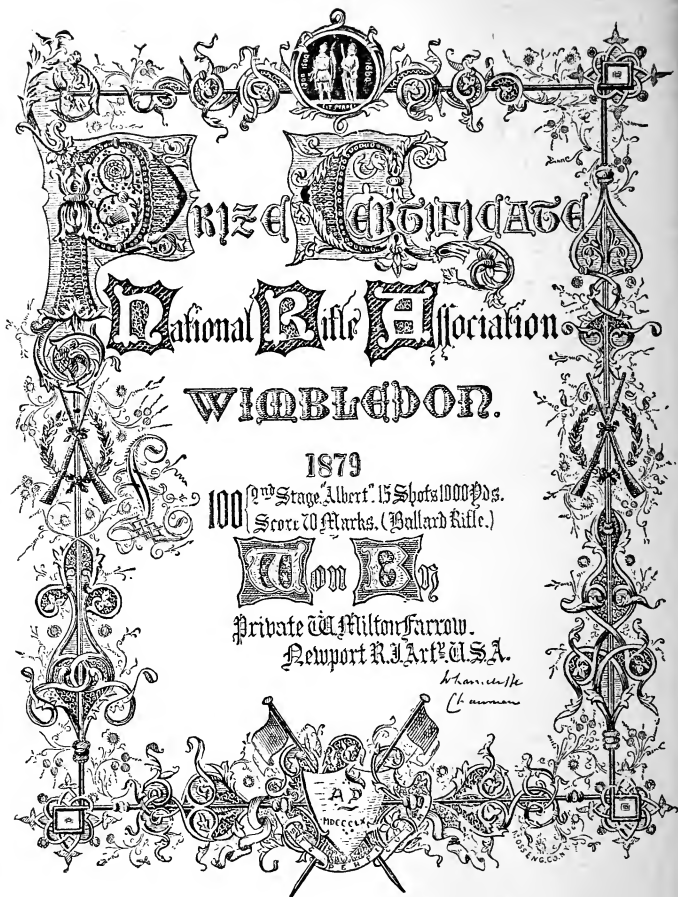 1300 1500 1860
SIT PERPET
PRIZE CERTIFICATE
National Rifle Association
WIMBLEDON.
1879
£ 100 { 2nd Stage, "Albert". 15 Shots 1000 Yds.
Score 70 Marks. (Ballard Rifle.)
Won By
Private W. Milton Farrow.
Newport R.I. Arty. U.S.A.
Wharncliffe
Chairman
A.D
MDCCCLX
ENG.CO.